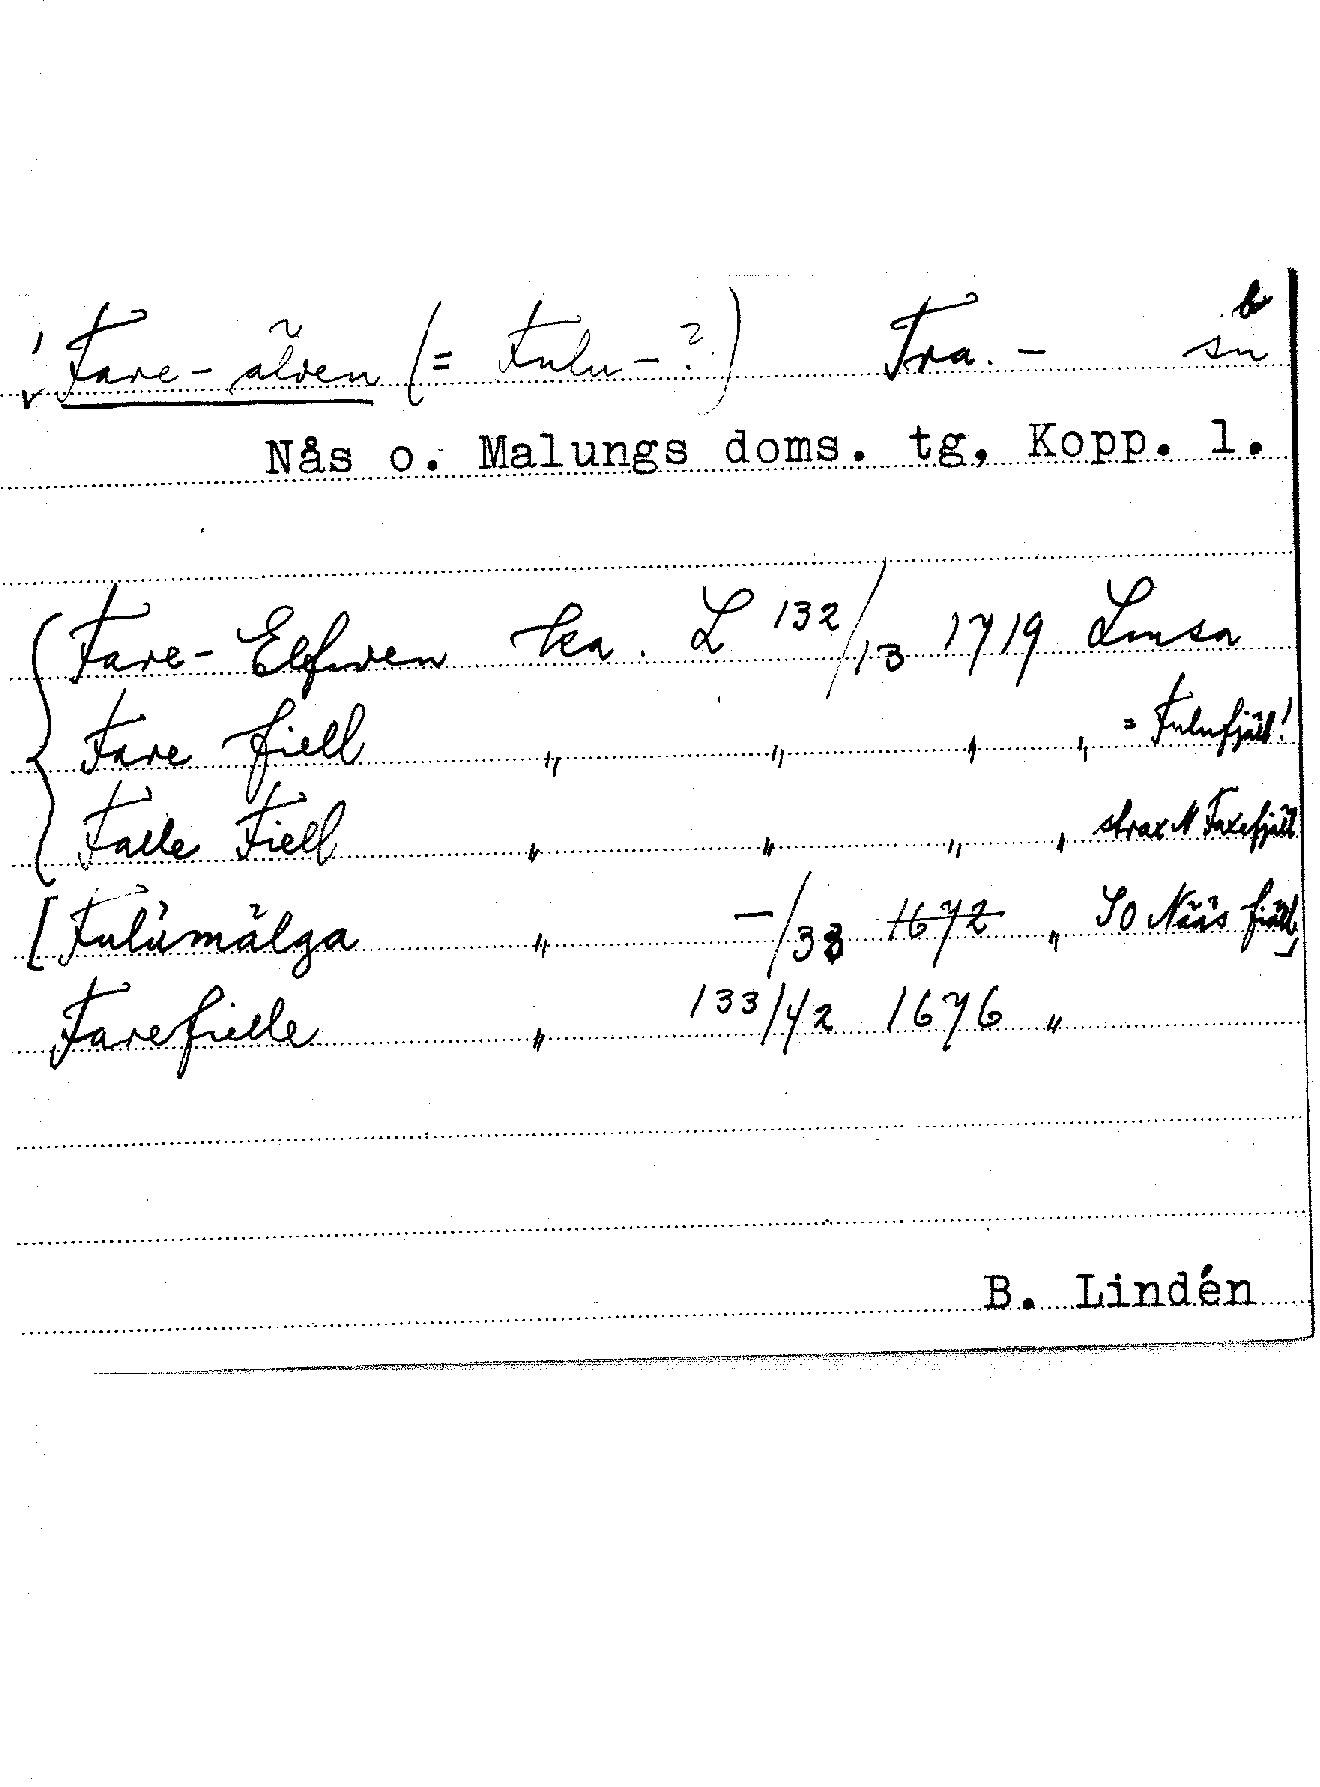 ! Fare-älven (= Fulu-?) Tra. - sn b
Nås o. Malungs doms. tg, Kopp. l.
{ Fare-Elfwen ka. L 132/13 1719 Lmsa
Fare fiell " " " " = Fulufjäll!
Falle Fiell " " " " strax N Faxefjäll
[Fulůmälga " -/33 1672 " SO Nääs fiäll]
Farefielle " 133/42 1676 "
B. Lindén